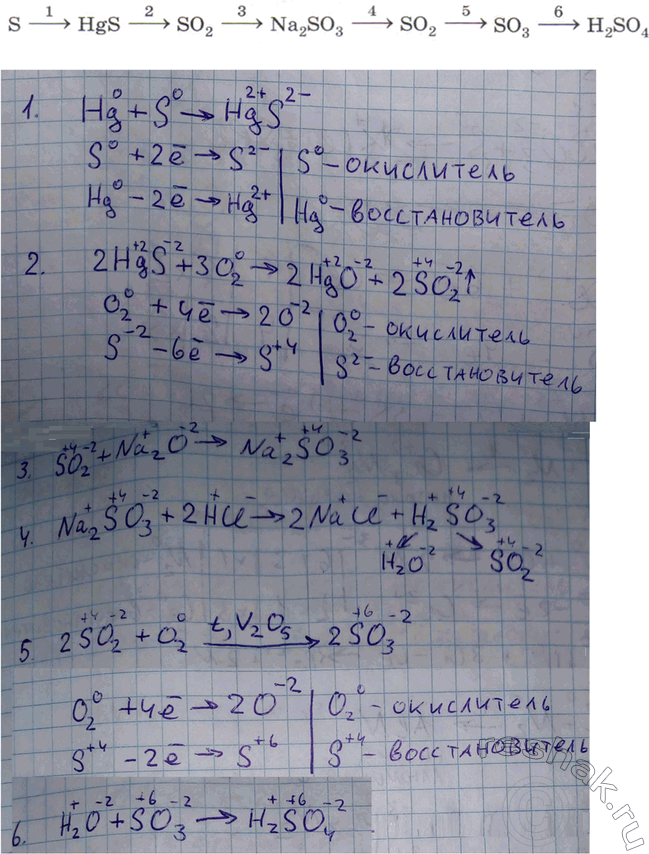 S →1 HgS →2 SO₂ →3 Na₂SO₃ →4 SO₂ →5 SO₃ →6 H₂SO₄
1. Hg⁰ + S⁰ → Hg²⁺S²⁻
S⁰ + 2ē → S²⁻ | S⁰ – окислитель
Hg⁰ – 2ē → Hg²⁺ | Hg⁰ – восстановитель
2. 2Hg⁺²S⁻² + 3O₂⁰ → 2Hg⁺²O⁻² + 2S⁺⁴O₂⁻²↑
O₂⁰ + 4ē → 2O⁻² | O₂⁰ – окислитель
S⁻² – 6ē → S⁺⁴ | S²⁻ – восстановитель
3. S⁺⁴O₂⁻² + Na₂⁺O⁻² → Na₂⁺S⁺⁴O₃⁻²
4. Na₂⁺S⁺⁴O₃⁻² + 2H⁺Cl⁻ → 2Na⁺Cl⁻ + H₂⁺S⁺⁴O₃⁻²
↙ ↘
H₂⁺O⁻² S⁺⁴O₂⁻²
5. 2S⁺⁴O₂⁻² + O₂⁰ →t, V₂O₅ 2S⁺⁶O₃⁻²
O₂⁰ + 4ē → 2O⁻² | O₂⁰ – окислитель
S⁺⁴ – 2ē → S⁺⁶ | S⁺⁴ – восстановитель
6. H₂⁺O⁻² + S⁺⁶O₃⁻² → H₂⁺S⁺⁶O₄⁻²
reshak.ru